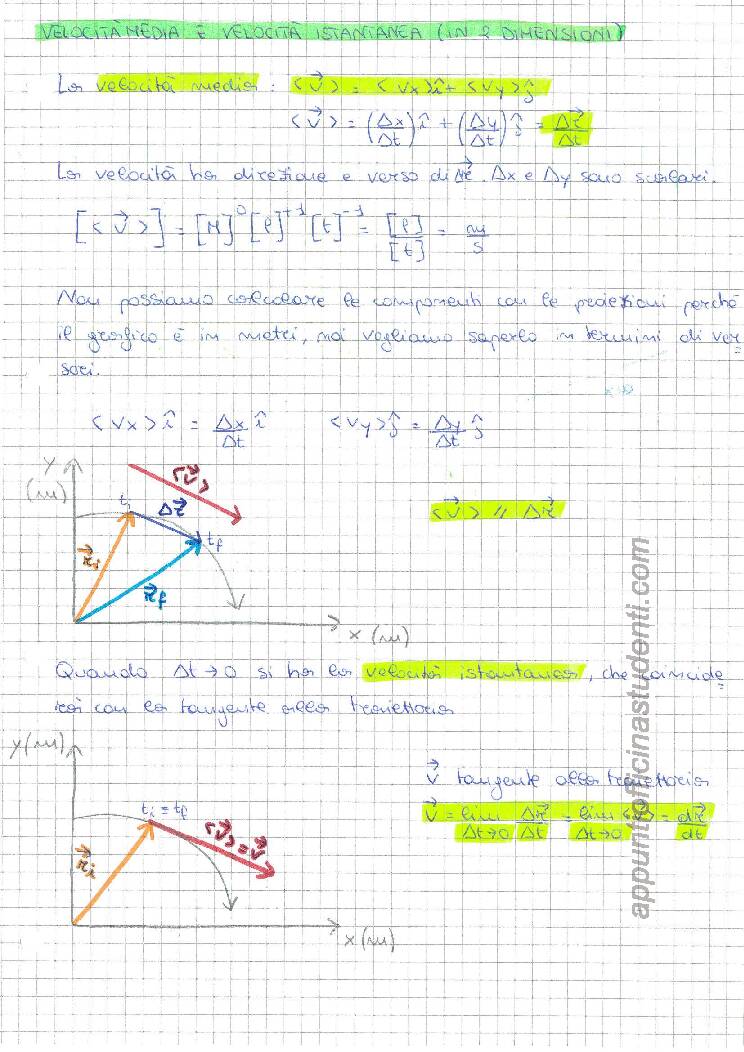 VELOCITÀ MEDIA E VELOCITÀ ISTANTANEA (IN 2 DIMENSIONI)
La velocità media: <v⃗> = <vx>î + <vy>ĵ
<v⃗> = (Δx/Δt)î + (Δy/Δt)ĵ = Δr⃗/Δt
La velocità ha direzione e verso di Δr⃗. Δx e Δy sono scalari.
[<v⃗>] = [M]⁰ [l]⁺¹ [t]⁻¹ = [l]/[t] = m/s
Non possiamo calcolare le componenti con le proiezioni perché
il grafico è in metri, noi vogliamo saperlo in termini di ver
sori.
<vx>î = Δx/Δt î <vy>ĵ = Δy/Δt ĵ
y (m)
<v⃗>
ti
Δr⃗
tf
<v⃗> // Δr⃗
r⃗i
r⃗f
x (m)
Quando Δt→0 si ha la velocità istantanea, che coincide
rà con la tangente alla traiettoria
y (m)
v⃗ tangente alla traiettoria
ti = tf
v⃗ = lim Δt→0 Δr⃗/Δt = lim Δt→0 <v⃗> = dr⃗/dt
<v⃗> = v⃗
r⃗i
x (m)
appuntofficinastudenti.com